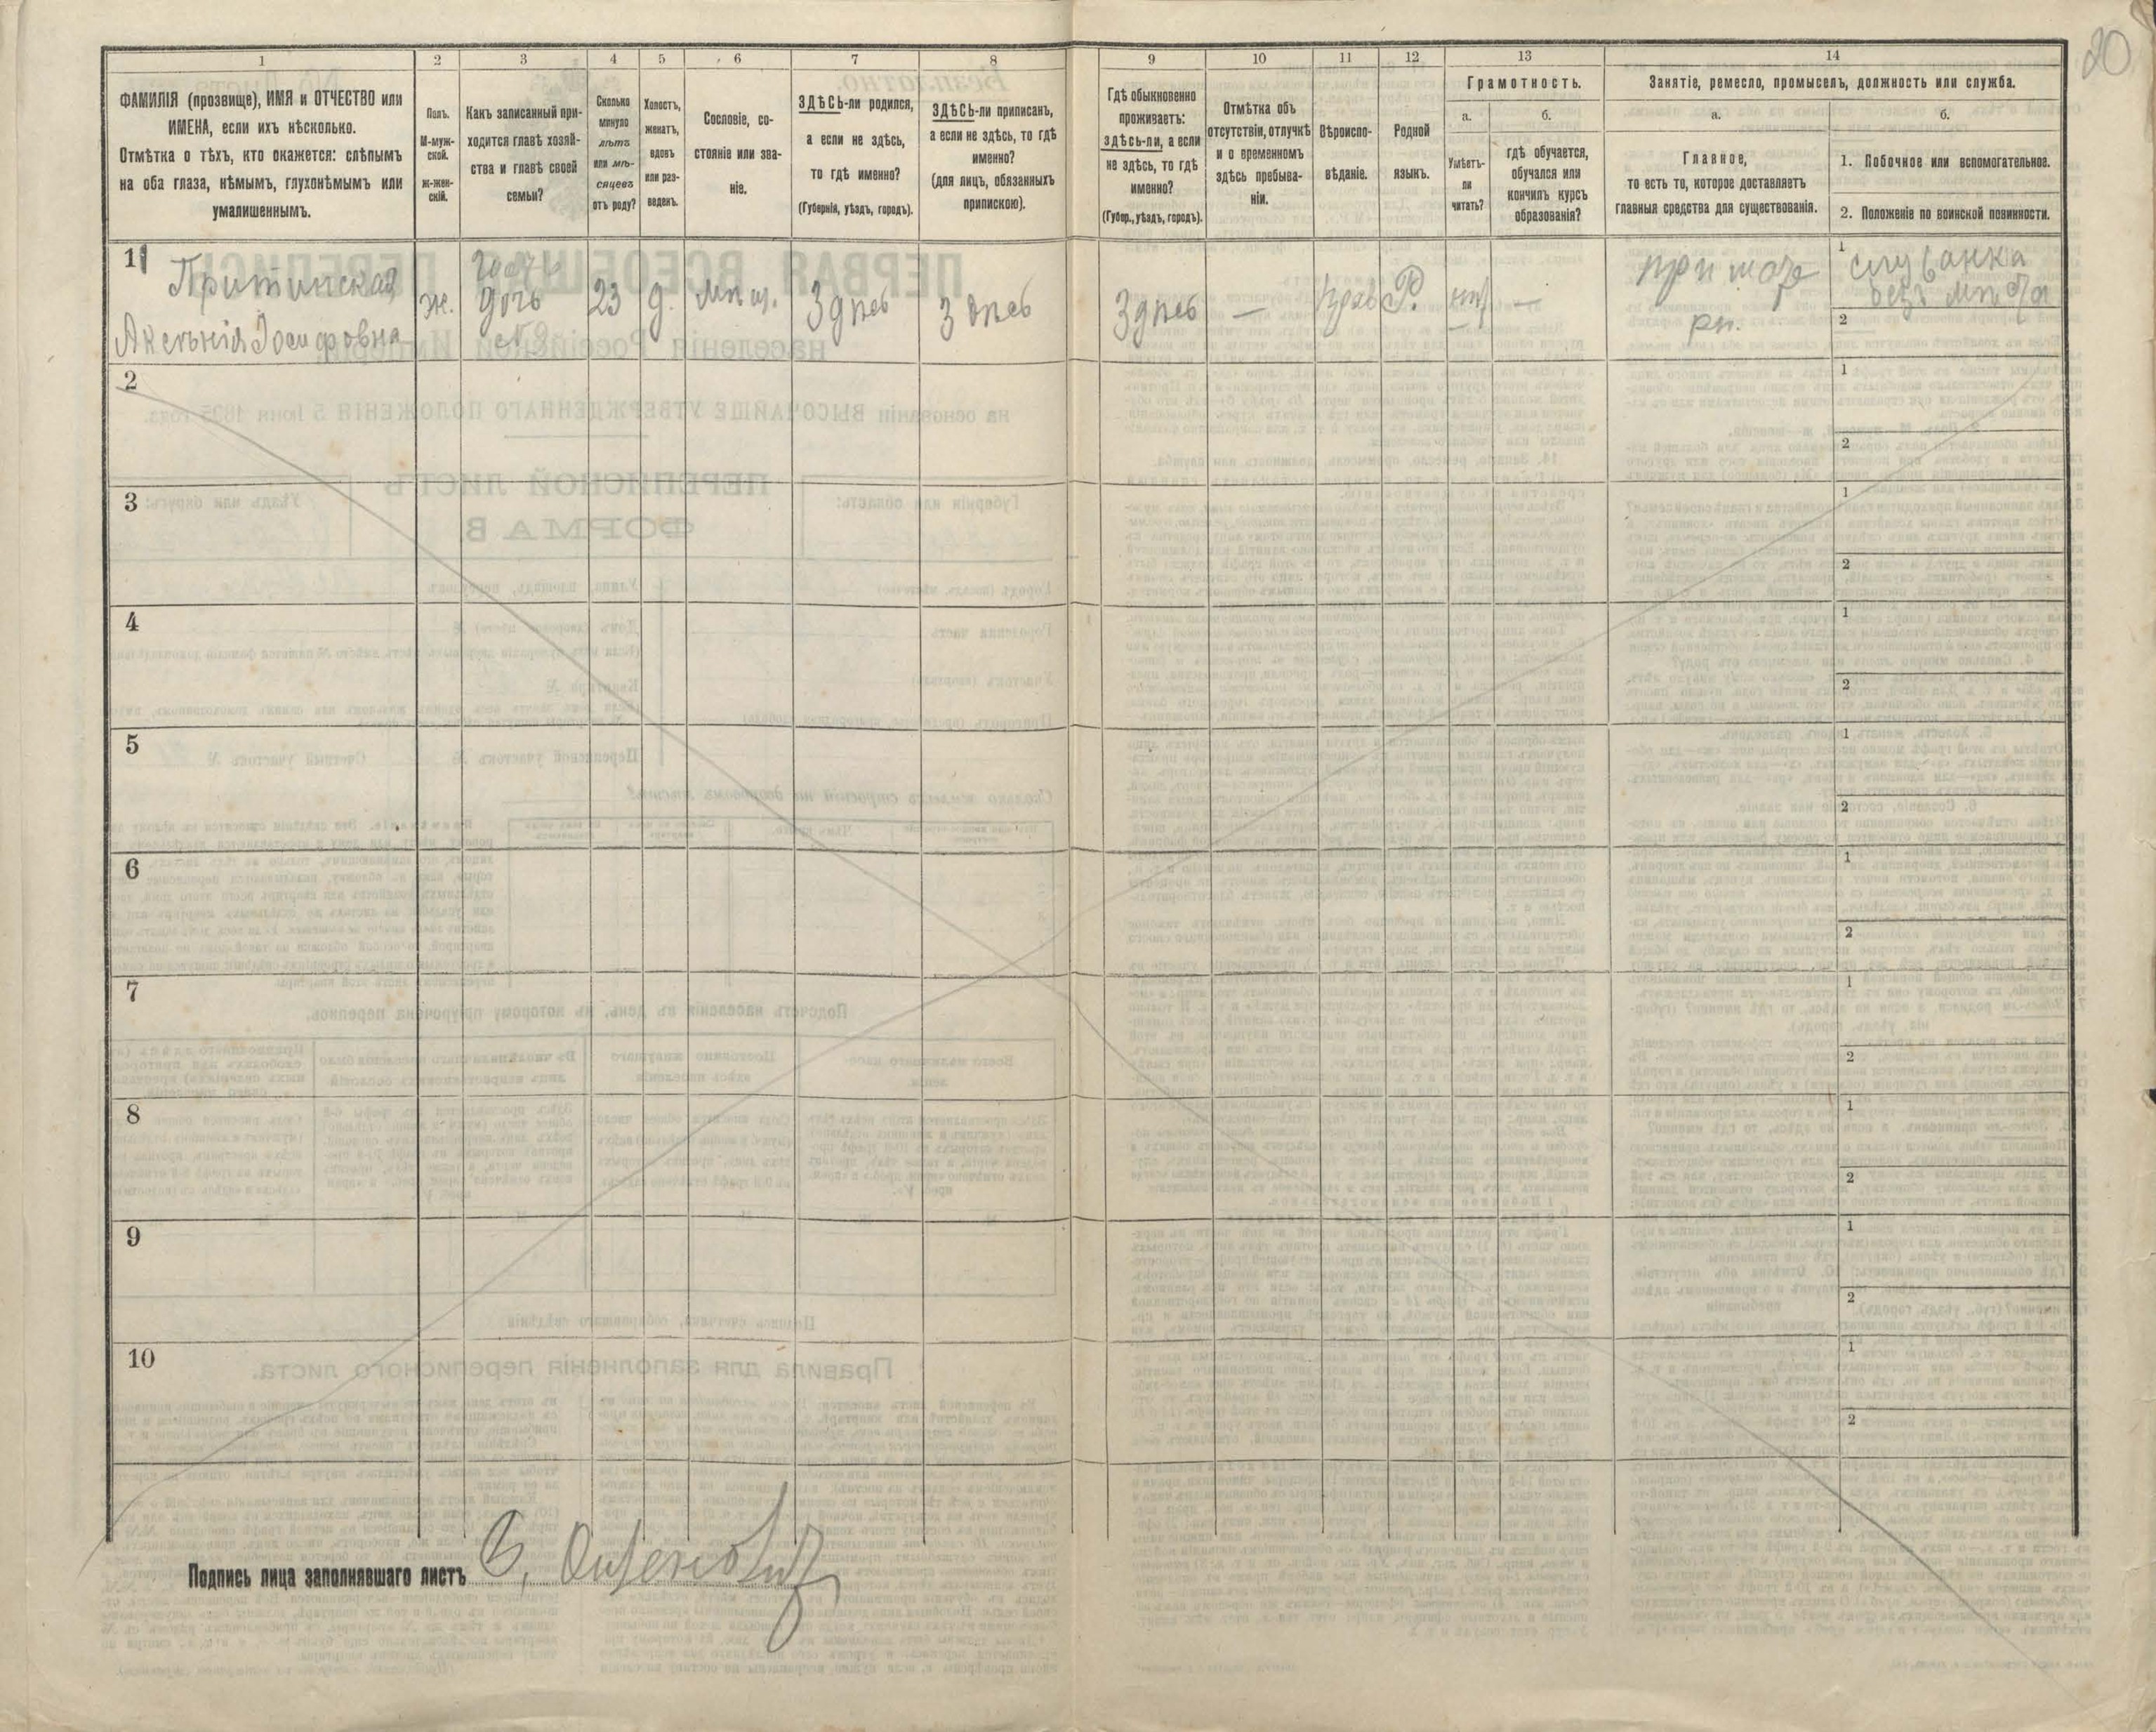 20
1
2
3
4
5
6
7
8
9
10
11
12
13
14
ФАМИЛІЯ (прозвище), ИМЯ и ОТЧЕСТВО или
ИМЕНА, если ихъ нѣсколько.
Отмѣтка о тѣхъ, кто окажется: слѣпымъ
на оба глаза, нѣмымъ, глухонѣмымъ или
умалишеннымъ.
Полъ.
М-муж-
ской.
Ж-жен-
скій.
Какъ записанный при-
ходится главѣ хозяй-
ства и главѣ своей
семьи?
Сколько
минуло
лѣтъ
или мѣ-
сяцевъ
отъ роду?
Холостъ,
женатъ,
вдовъ
или раз-
веденъ.
Сословіе, со-
стояніе или зва-
ніе.
ЗДѢСЬ-ли родился,
а если не здѣсь,
то гдѣ именно?
(Губернія, уѣздъ, городъ).
ЗДѢСЬ-ли приписанъ,
а если не здѣсь, то гдѣ
именно?
(для лицъ, обязанныхъ
припискою).
Гдѣ обыкновенно
проживаетъ:
здѣсь-ли, а если
не здѣсь, то гдѣ
именно?
(Губер., уѣздъ, городъ).
Отмѣтка объ
отсутствіи, отлучкѣ
и о временномъ
здѣсь пребыва-
ніи.
Вѣроиспо-
вѣданіе.
Родной
языкъ.
Грамотность.
а.
Умѣетъ-
ли
читать?
б.
гдѣ обучается,
обучался или
кончилъ курсъ
образованія?
Занятіе, ремесло, промыселъ, должность или служба.
а.
Главное,
то есть то, которое доставляетъ
главныя средства для существованія.
б.
1. Побочное или вспомогательное.
2. Положеніе по воинской повинности.
1
Аксенія Іосифовна
ж.
дочь
23
д.
мѣщ.
Здѣсь
Здѣсь
Здѣсь
—
Прав
Р.
нѣт
—
служанка
безъ мѣста
1
2
2
1
2
3
1
2
4
1
2
5
1
2
6
1
2
7
1
2
8
1
2
9
1
2
10
1
2
Подпись лица заполнявшаго листъ